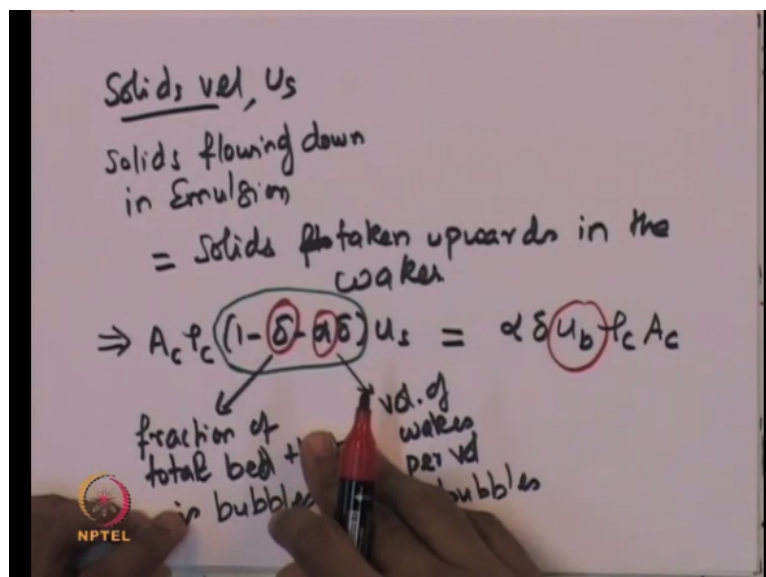 Solids vel, Us
Solids flowing down
in Emulsion
= Solids taken upwards in the
wakes
⇒ Ac ρc (1 - δ - αδ) Us = α δ Ub ρc Ac
fraction of
total bed
is bubbles
vol. of
wakes
per vol
bubbles
NPTEL